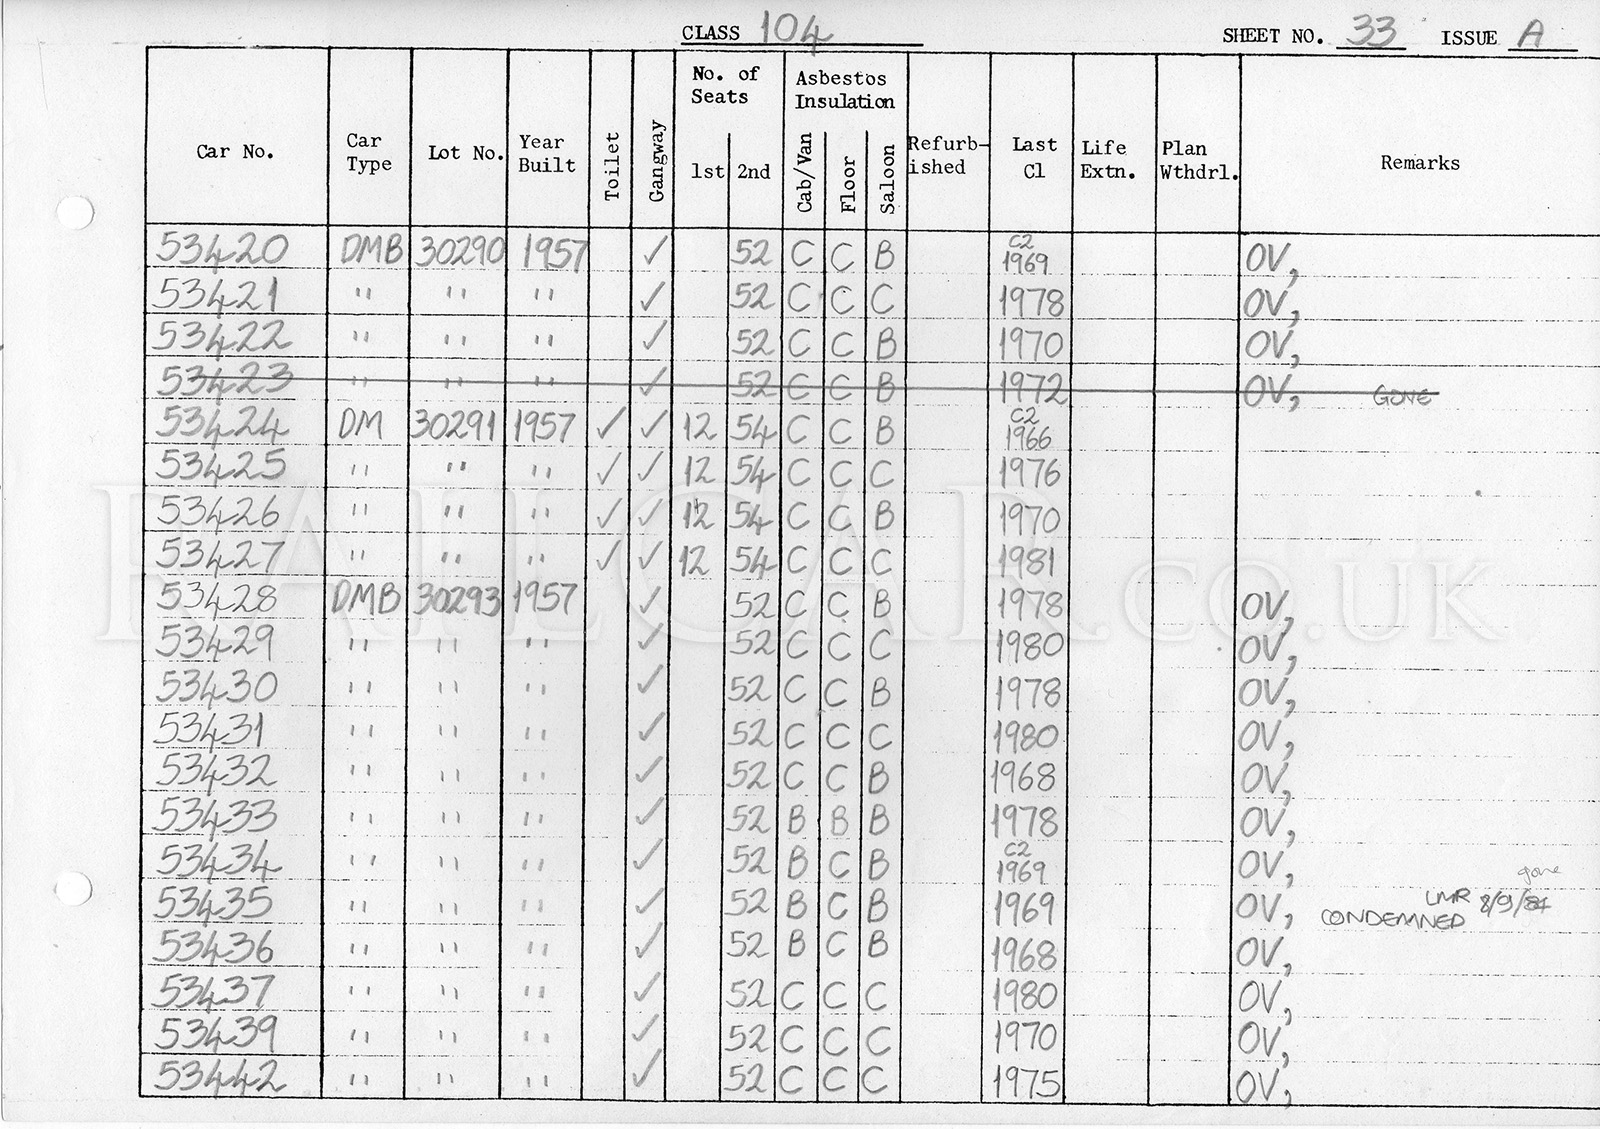 CLASS 104 SHEET NO. 33 ISSUE A
Car No. Car Type Lot No. Year Built Toilet Gangway No. of Seats 1st 2nd Asbestos Insulation Cab/Van Floor Saloon Refurb-ished Last Cl Life Extn. Plan Wthdrl. Remarks
53420 DMB 30290 1957 ✓ 52 C C B C2 1969 OV,
53421 " " " ✓ 52 C C C 1978 OV,
53422 " " " ✓ 52 C C B 1970 OV,
53423 " " " ✓ 52 C C B 1972 OV, GONE
53424 DM 30291 1957 ✓ ✓ 12 54 C C B C2 1966
53425 " " " ✓ ✓ 12 54 C C C 1976
53426 " " " ✓ ✓ 12 54 C C B 1970
53427 " " " ✓ ✓ 12 54 C C C 1981
53428 DMB 30293 1957 ✓ 52 C C B 1978 OV,
53429 " " " ✓ 52 C C C 1980 OV,
53430 " " " ✓ 52 C C B 1978 OV,
53431 " " " ✓ 52 C C C 1980 OV,
53432 " " " ✓ 52 C C B 1968 OV,
53433 " " " ✓ 52 B B B 1978 OV,
53434 " " " ✓ 52 B C B C2 1969 OV,
53435 " " " ✓ 52 B C B 1969 OV, CONDEMNED LMR 8/9/84 gone
53436 " " " ✓ 52 B C B 1968 OV,
53437 " " " ✓ 52 C C C 1980 OV,
53439 " " " ✓ 52 C C C 1970 OV,
53442 " " " ✓ 52 C C C 1975 OV,
RAILCAR.CO.UK